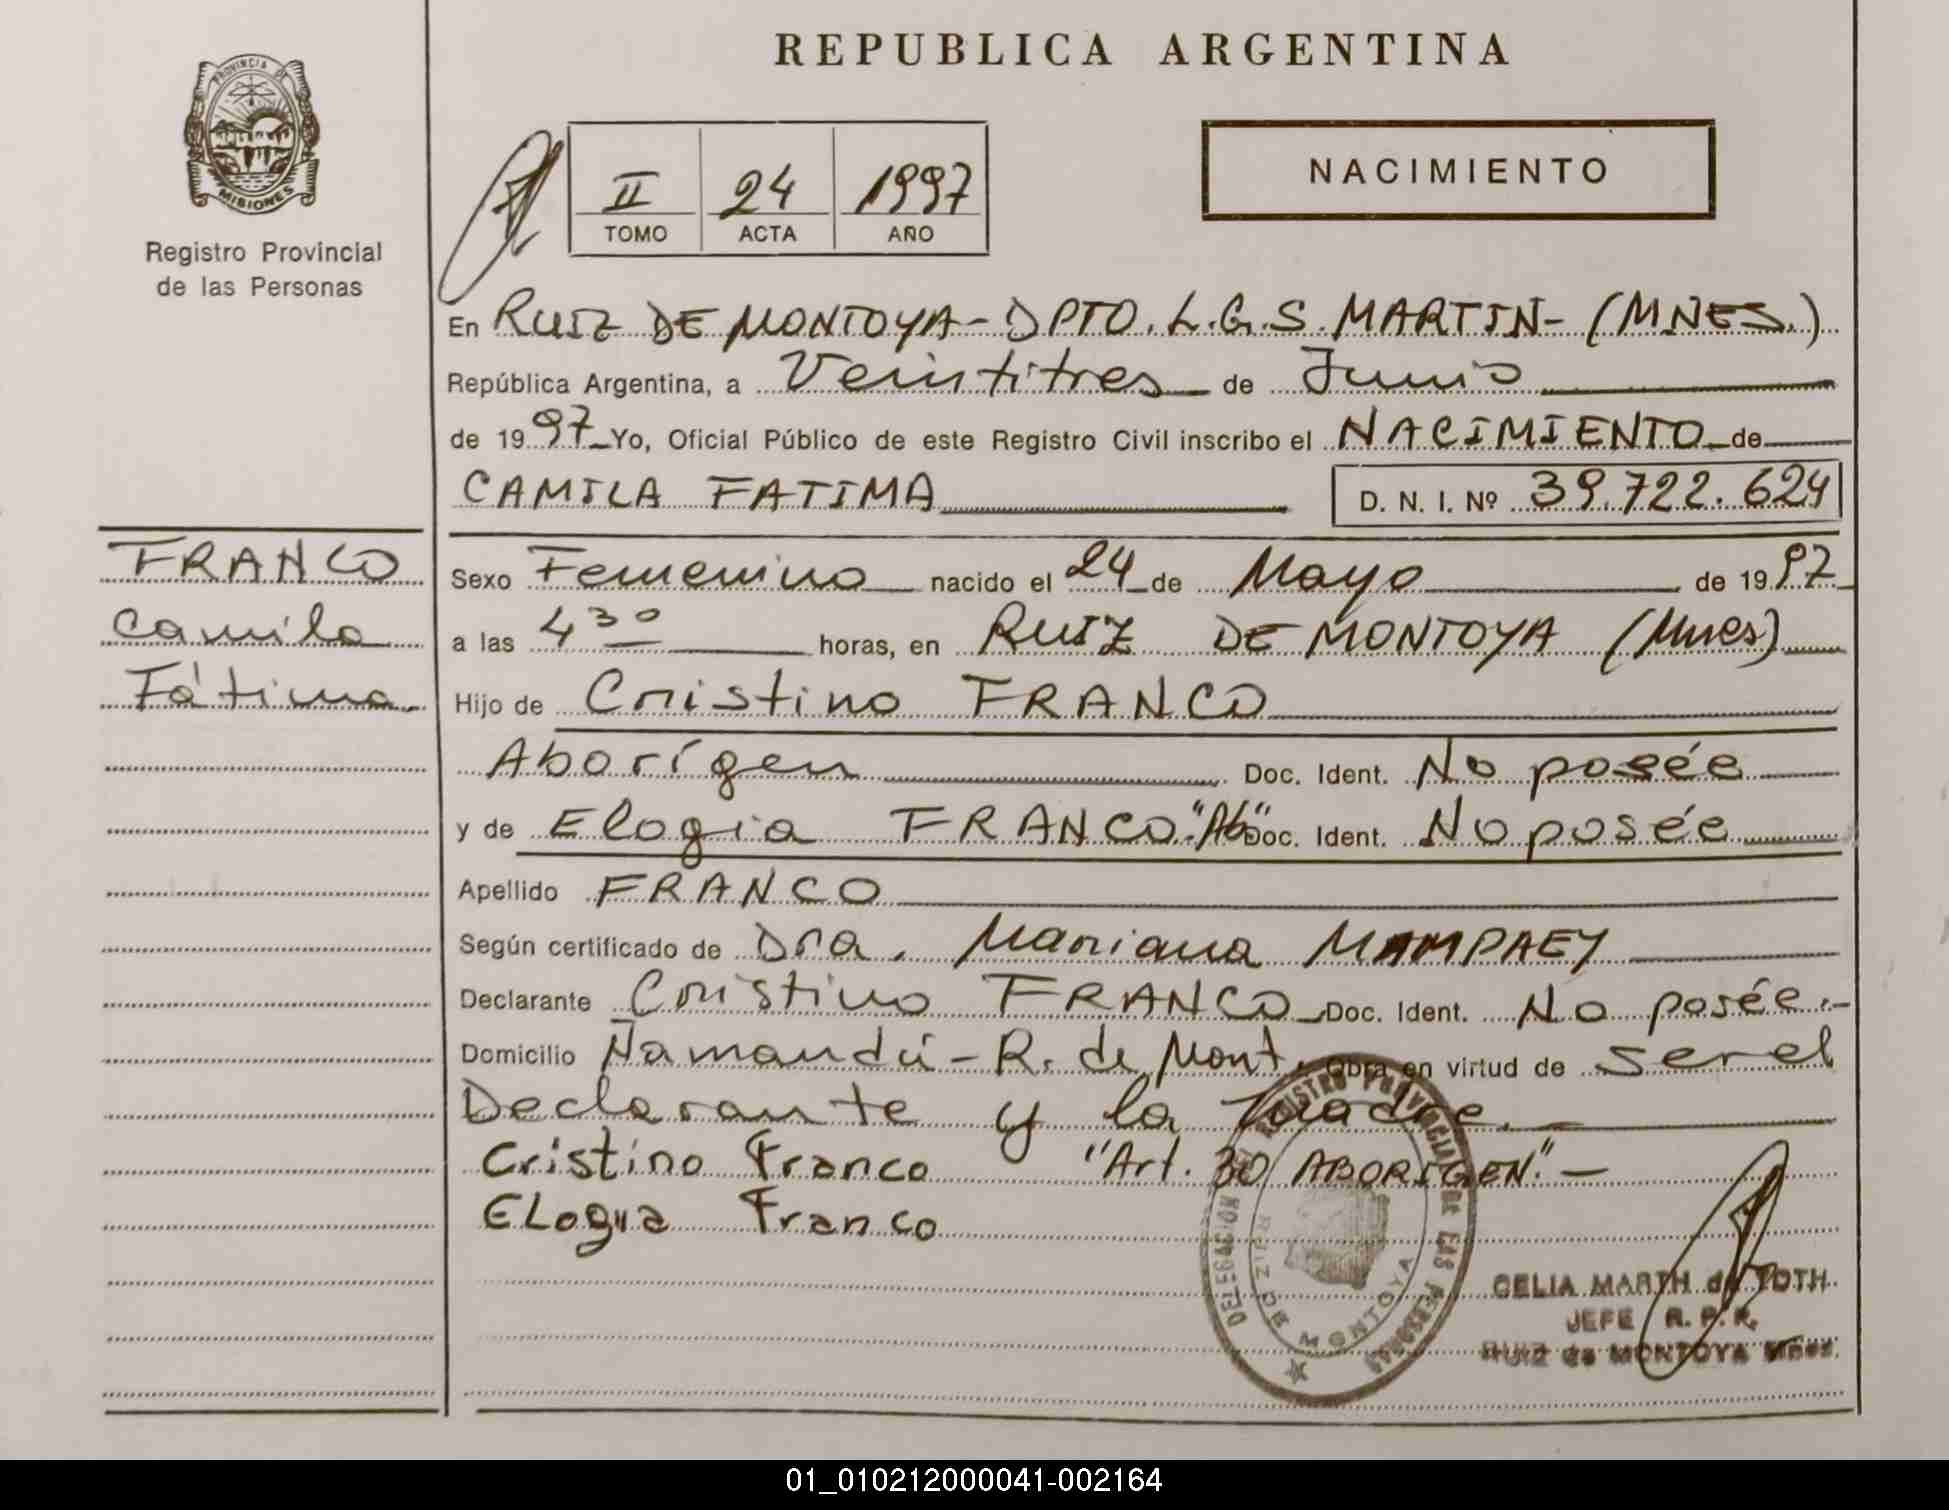 REPUBLICA ARGENTINA
PROVINCIA DE
MISIONES
Registro Provincial
de las Personas
II 24 1997
TOMO ACTA AÑO
NACIMIENTO
En RUIZ DE MONTOYA- DPTO. L.G.S. MARTIN- (MNES.)
República Argentina, a Veintitres de Junio
de 1997 Yo, Oficial Público de este Registro Civil inscribo el NACIMIENTO de
CAMILA FATIMA D. N. I. Nº 39.722.624
FRANCO
Camila
Fátima
Sexo Femenino nacido el 24 de Mayo de 1997
a las 4 30 horas, en RUIZ DE MONTOYA (Mnes)
Hijo de Cristino FRANCO
Aborígen Doc. Ident. No posée
y de Elogia FRANCO."Ab" Doc. Ident. No posée
Apellido FRANCO
Según certificado de Dra. Mariana MAMPAEY
Declarante Cristino FRANCO Doc. Ident. No posée.-
Domicilio Ñamandú - R. de Mont. Obra en virtud de ser el
Declarante y la madre.
Cristino Franco "Art. 30 ABORIGEN." -
ELogia Franco
REGISTRO PROVINCIAL DE LAS PERSONAS
DELEGACION
RUIZ DE MONTOYA
CELIA MARTH de TOTH
JEFE R. P. P.
RUIZ de MONTOYA Mnes.
01_010212000041-002164